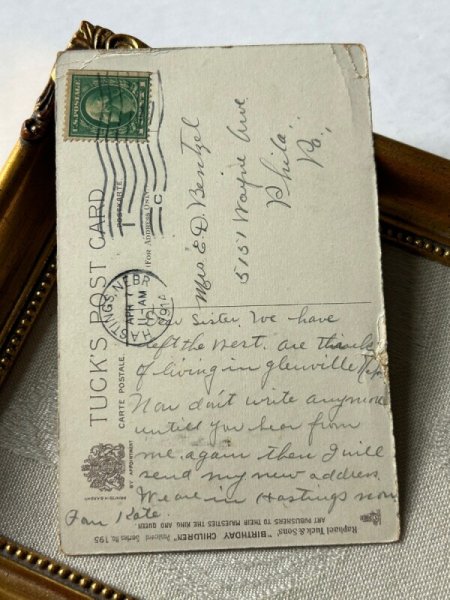 U.S. POSTAGE
HASTINGS, NEBR.
APR 7
11-AM
1914
TUCK'S POST CARD
CARTE POSTALE.
POSTKARTE
(FOR ADDRESS ONLY)
BY APPOINTMENT
Mrs E. D. Bentzel
5151 Wayne Ave
Phila.,
Pa.
Dear Sister. We have
left the West. are
of living in glenville
Now don't write anymore
untill you hear from
me again then I will
send my new address
We are in Hastings now
Raphael Tuck & Sons' "BIRTHDAY CHILDREN" Postcard Series No. 195
ART PUBLISHERS TO THEIR MAJESTIES THE KING AND QUEEN